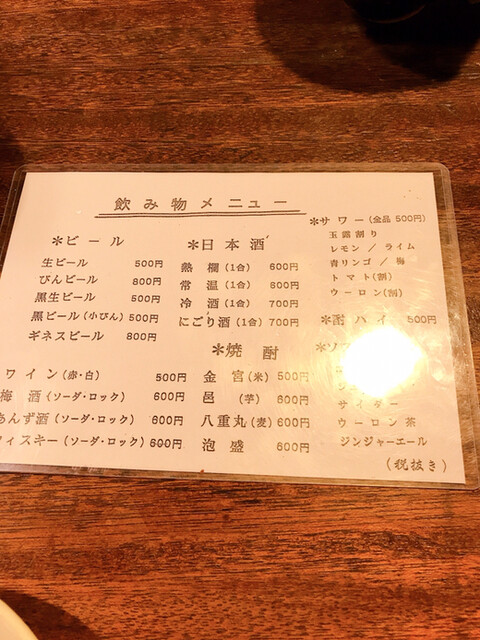 飲み物メニュー
*ビール
生ビール 500円
びんビール 800円
黒生ビール 500円
黒ビール(小びん) 500円
ギネスビール 800円
ワイン(赤・白) 500円
梅酒(ソーダ・ロック) 600円
あんず酒(ソーダ・ロック) 600円
ィスキー(ソーダ・ロック) 600円
*日本酒
熱欄(1合) 600円
常温(1合) 600円
冷酒(1合) 700円
にごり酒(1合) 700円
*焼酎
金宮(米) 500円
呂(芋) 600円
八重丸(麦) 600円
泡盛 600円
*サワー(全品500円)
玉露割り
レモン/ライム
青リンゴ/梅
トマト(割)
ウーロン(割)
*酎ハイ 500円
*ソフ
サイダー
ウーロン茶
ジンジャーエール
(税抜き)